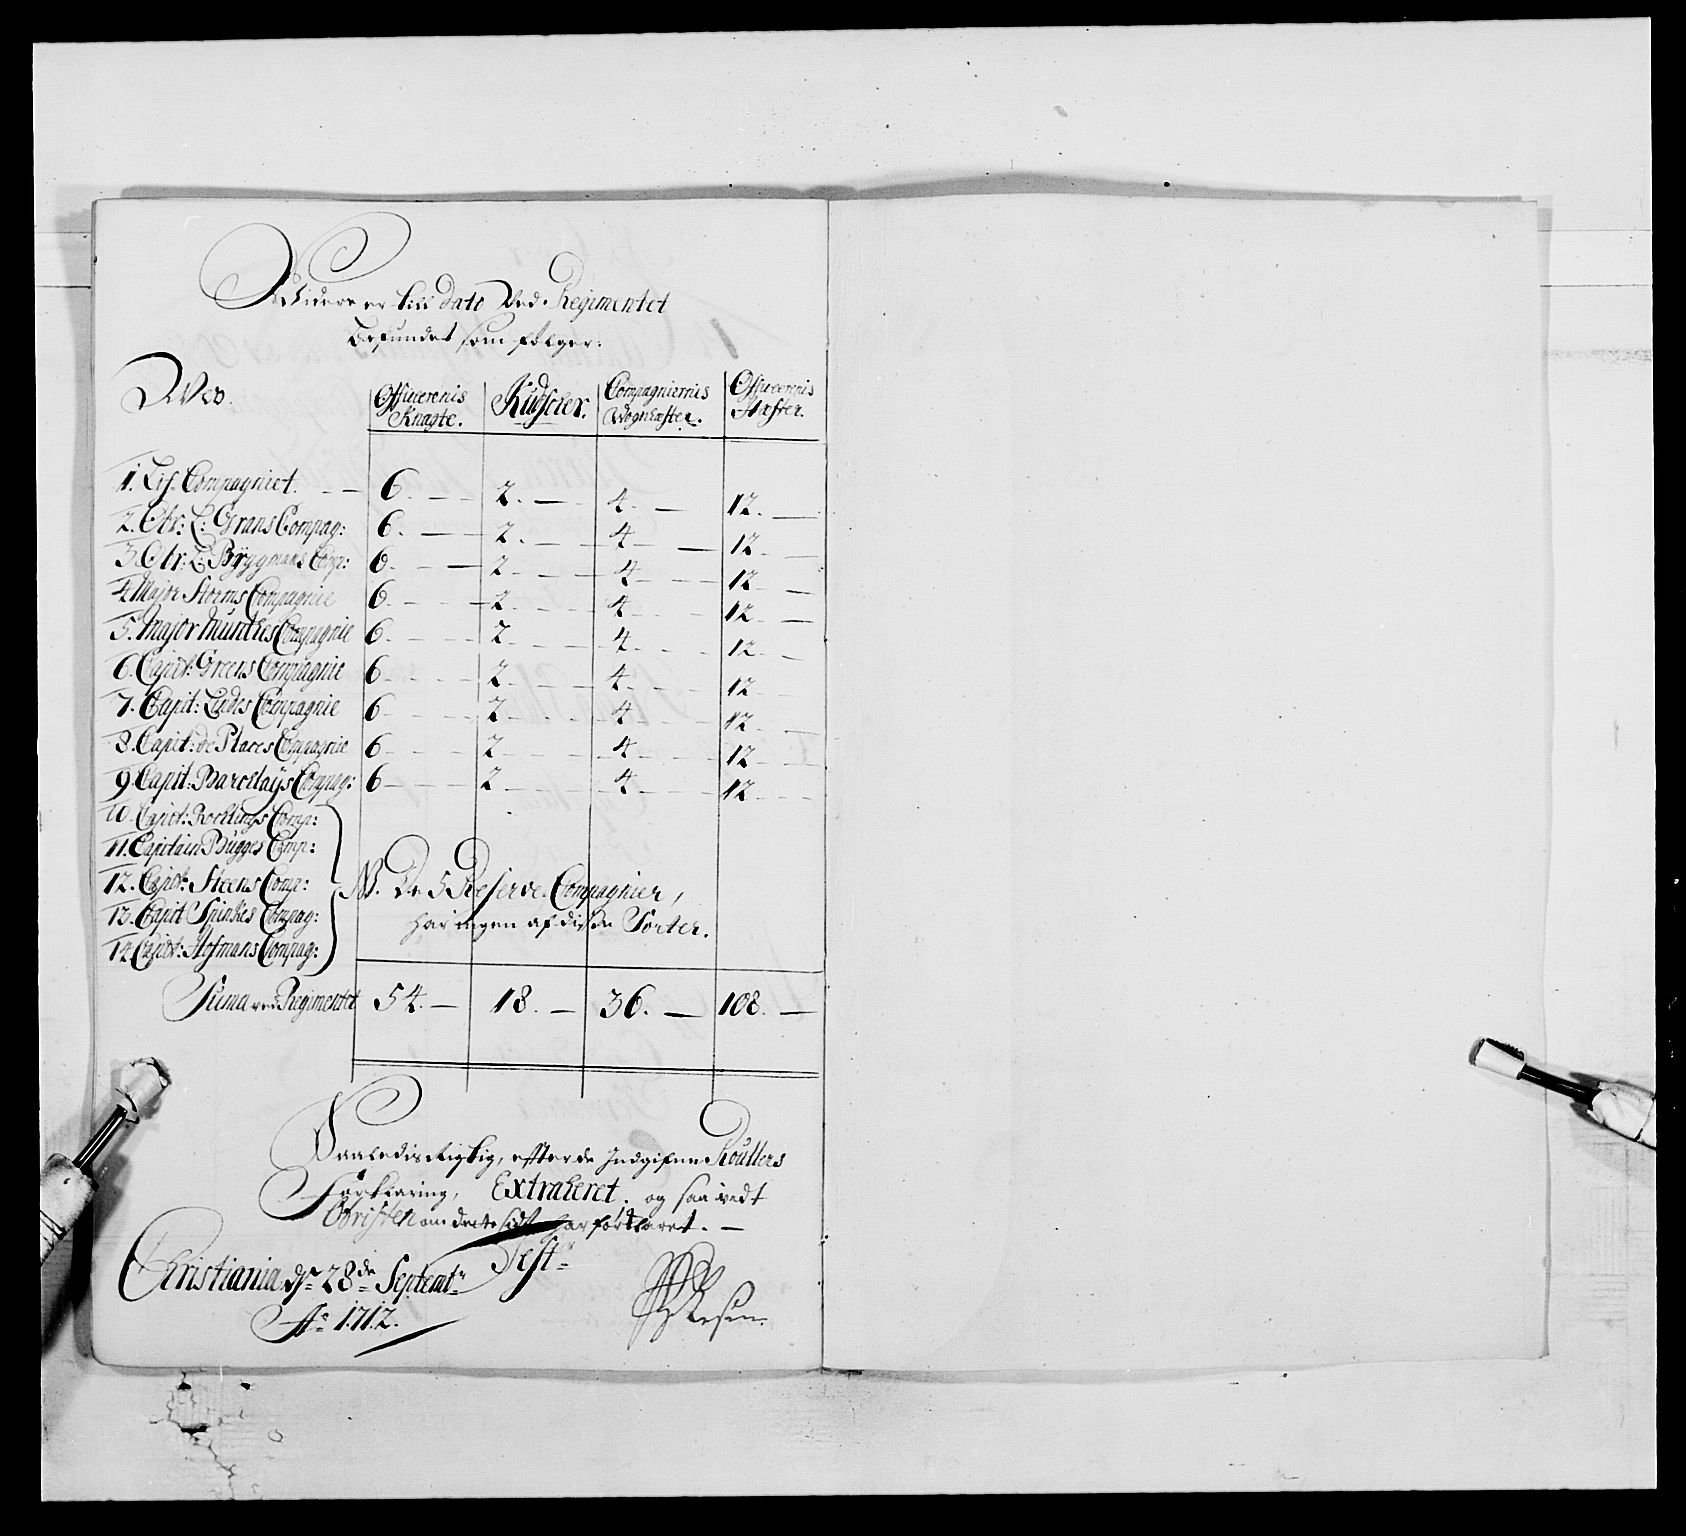 Widere er till dato Ved Regimentet
befundet som følger:
Wed.
Officerernis Knægte. Kudscker. Compagniernis Wognhæster. Officerernis Hæster.
1. Lif Compagniet. 6. 2. 4. 12.
2. Obr: L: Grans Compag: 6. 2. 4. 12.
3. Obr: L: Brÿgmans Comp: 6. 2. 4. 12.
4. Major Storms Compagnie 6. 2. 4. 12.
5. Major Munthes Compagnie 6. 2. 4. 12.
6. Capit: Greens Compagnie 6. 2. 4. 12.
7. Capit: Ludes Compagnie 6. 2. 4. 12.
8. Capit: de Places Compagnie 6. 2. 4. 12.
9. Capit: Barclaÿs Compag: 6. 2. 4. 12.
10. Capit: Rochlings Comp:
11. Capitain Bugges Comp:
12. Capit: Steens Comp: NB. De 5 Reserve Compagnier,
13. Capit Spinkes Compag: har ingen af disse Sorter.
14. Capit: Hofmans Compag:
Suma ved Regimentet 54. 18. 36. 108.
Saaledis Rigtig, effter de Indgifne Roullers
Forklaring, Extraheret. og saa vidt
Obristen om dette sidst har forklaret.
Test:
Christiania, dn 28de Septembr
Ao 1712.